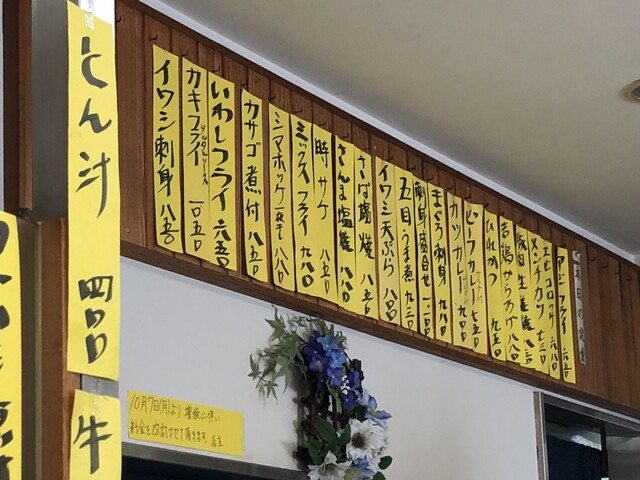 本日の定食
アジフライ 六三〇
メンチカツ 七三〇
豚肉生姜焼 八三〇
若鶏からあげ 八八〇
ヒレカツ 九〇〇
ビーフカレー 七五〇
カツカレー 九八〇
まぐろ刺身 九八〇
刺身盛合せ 一一〇〇
五目うま煮 九三〇
イワシ天ぷら 八八〇
さば塩焼 八五〇
さんま塩焼 八八〇
時サケ 八五〇
ミックスフライ 九八〇
シマホッケ 一夜干し 八八〇
カサゴ煮付 八五〇
いわしフライ 六五〇
カキフライ タルタルソース 一〇五〇
イワシ刺身 八五〇
とん汁 四四〇
牛
10月7日(月)より 増税に伴い
料金を改訂させて頂きます。店主